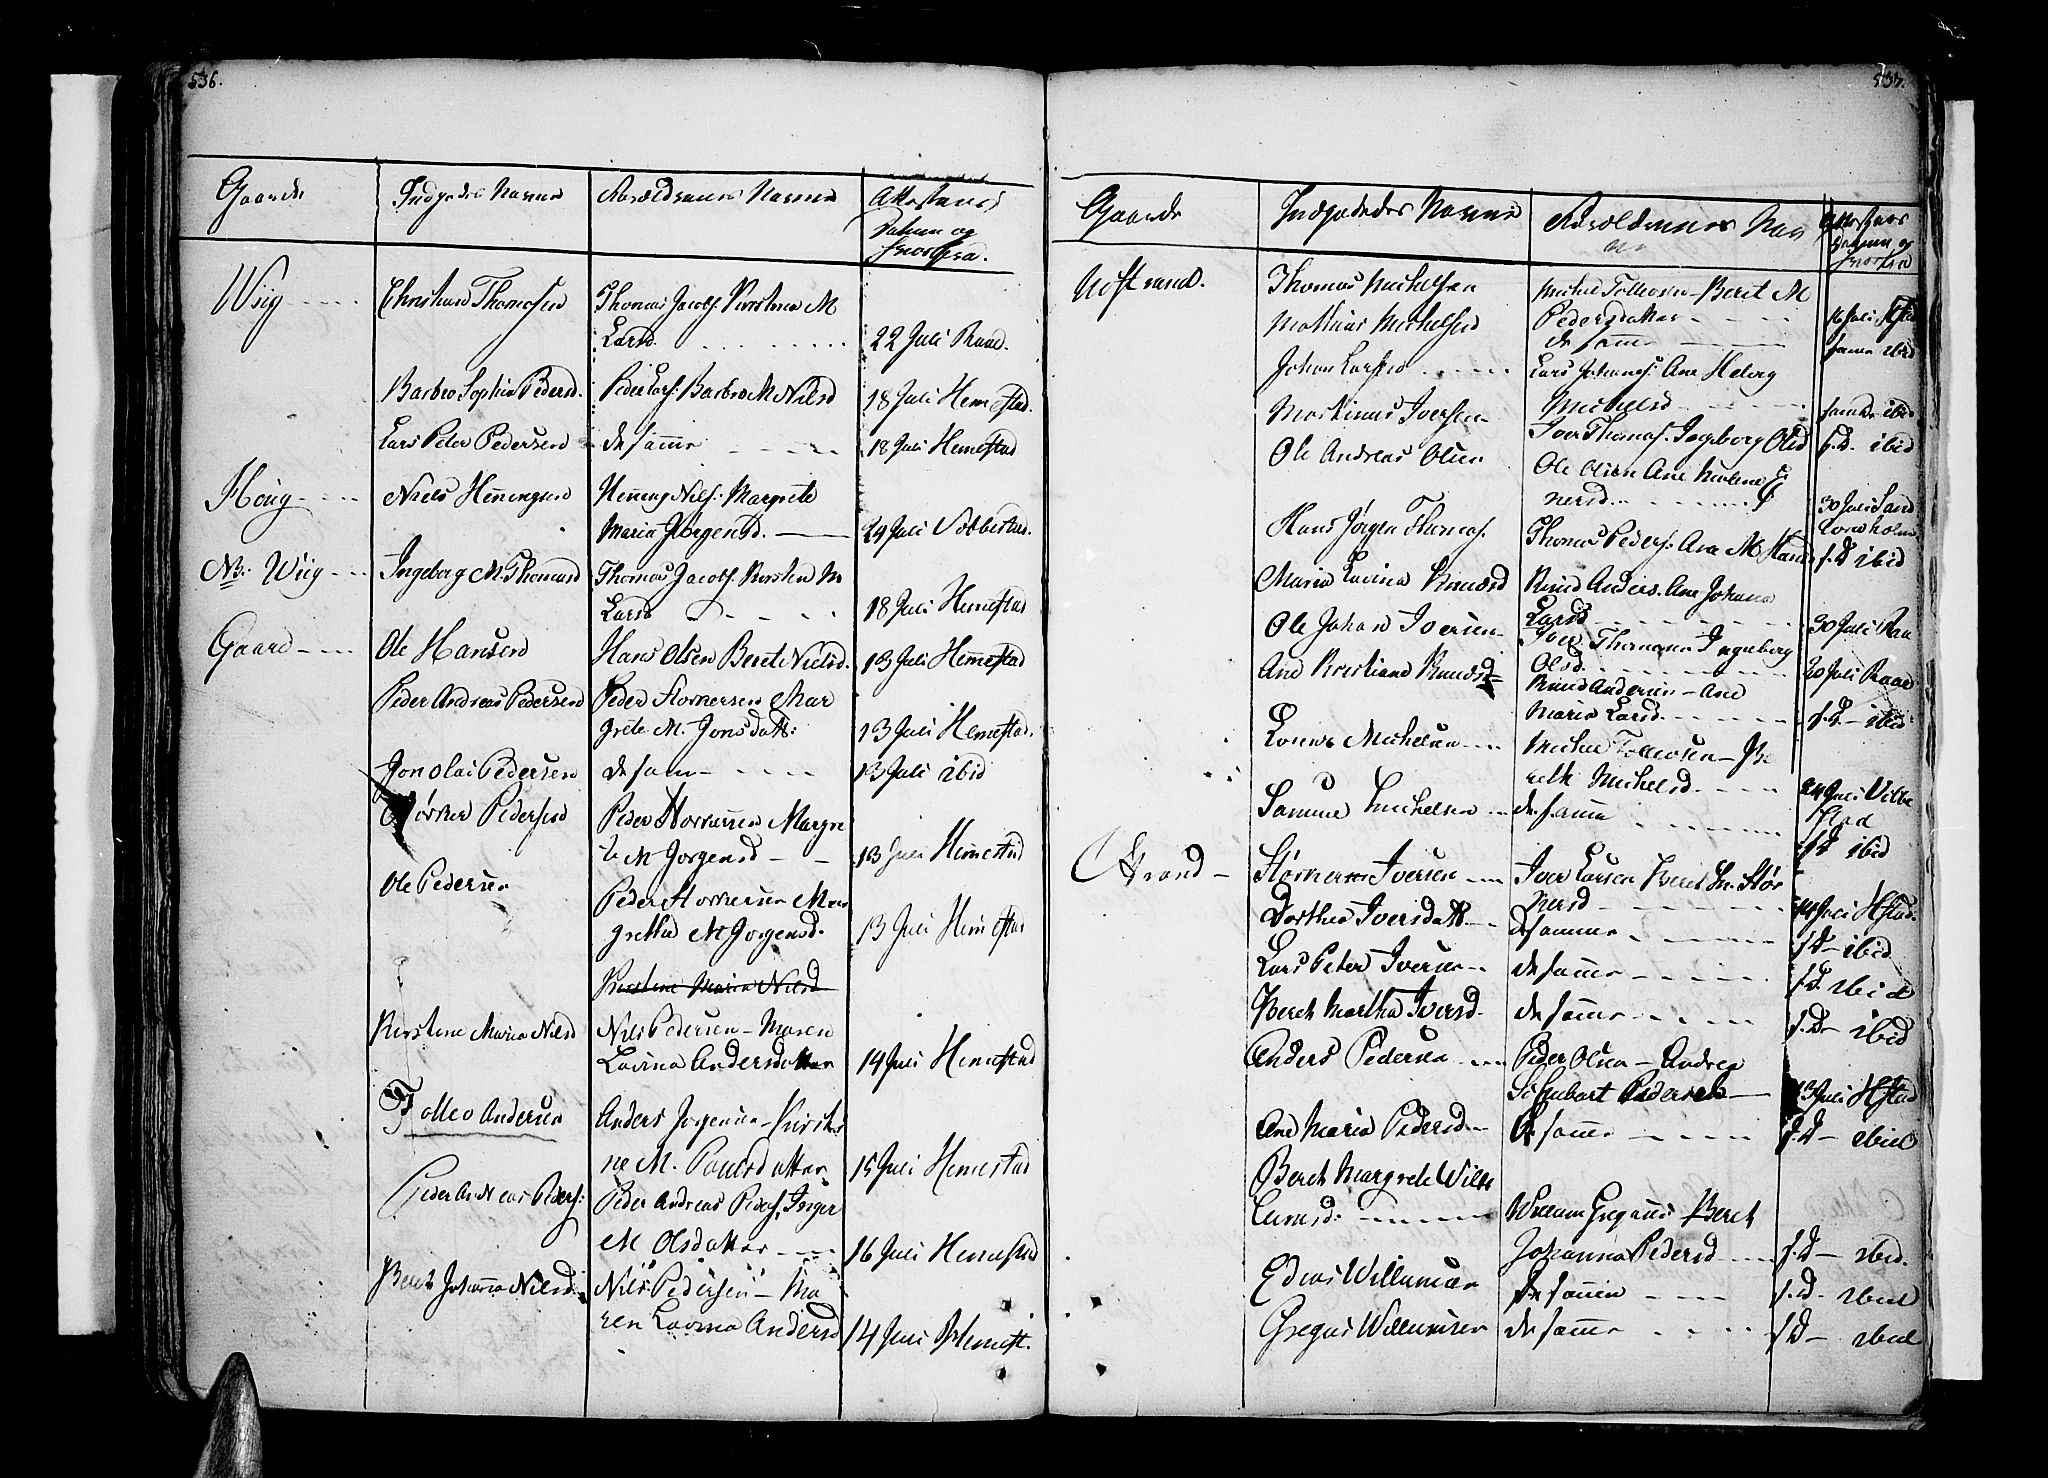 536.
Gaarde
Indpodedes Navne
Forældrenes Navne
Attestens
Datum og
hvorfra.
Wiig
Christian Thomasen
Thomas Jacobs. Kirstena M
Larsd.
22 Juli Raae.
Barbro Sophia Pedersd.
Peder Lars. Barbro M Nielsd
18 Juli Hemestad.
Lars Peter Pedersen
de samme
18 Juli Hemestad
Houg
Niels Henningsen
Henning Nils. Margrete
Maria Jørgensd.
29 Juli Vebbestad.
N: Wiig
Ingeborg M. Thomasd
Thomas Jacobs. Kirsten M
Larsd
18 Juli Hemestad
Gaard
Ole Hansen
Hans Olsen Berete Nielsd.
13 Juli Hemestad
Peder Andreas Pedersen
Peder Størkersen Mar
grete M. Jonsdatt:
13 Juli Hemestad.
Jon Olai Pedersen
de sam
13 Juli ibid
Størker Pedersen
Peder Størkersen Margre
te M Jørgensd
13 Juli Hemestad
Ole Pedersen
Peder Størkersen Mar
gretha M Jørgensd.
13 Juli Hemestad
Kirstene Maria Nilsd
Kirstene Maria Nilsd
Nils Pedersen Maren
Lavina Andersdatter
14 Juli Hemestad
Tolleo Andersen
Anders Jørgensen Kirste
ne M. Poulsdatter
15 Juli Hemestad
Peder Andreas Peders.
Peder Andreas Peders. Inger
M Olsdatter
16 Juli Hemestad
Beret Johanna Nilsd
Nils Pedersen Ma
ren Lavina Andersd
14 Juli Hemest.
537.
Gaarde
Indpodedes Navne
Forældrenes Nav
Attestens
Datum og
hvorfra
Nesstrand.
Thomas Michelsen
Michel Tolleosen Beret M
Pedersdatter
16 Juli Hstad
Mathias Michelsen
de samme
samme ibid
Johan Larsen
Lars Johannes. Ane Helvig
Michelsd
samme ibid
Martinus Iversen
Iver Thomas. Ingeborg Olsd
s. D. ibid
Ole Andreas Olsen
Ole Olsen Ane Malena E
nersd
30 Juli Sand
Hans Jørgen Thomas.
Thomas Peders. Ane M Hans
s. D ibid
Maria Lavina Knudsd
Knud Anders. Ane Johana
Larsd
30 Juli Raa
Ole Johan Iversen
Iver Thomasen Ingeborg
Olsd.
20 Juli Raae
Ane Kristiane Knudsd
Knud Andersen Ane
Maria Larsd.
s. D ibid
Michelsen
Michel Tolleosen Be
reth Michelsd.
24 Juli Vebbe
stad
Samuel Michelsen
de samme
s D ibid
Strand
Størker Iversen
Iver Larsen Beret M. Stør
kersd
14 Juli Hstad.
Dorthea Iversdatt.
de samme
s D ibid
Lars Peter Iversen
de samme
s D. ibid
Beret Martha Iversd.
de samme
s. D ibid
Anders Pedersen
Peder Olsen Andrea
Schubart Pedersen
13 Juli Hstad
Ane Maria Pedersd
de samme
s. D ibid
Beret Margrete Wille
umsd:
Willum Gregusen Beret
Johanna Pedersd
s. D ibid.
Edias Willumsen
de samme
s. D. ibid
Gregus Willumsen
de samme
s D ibid